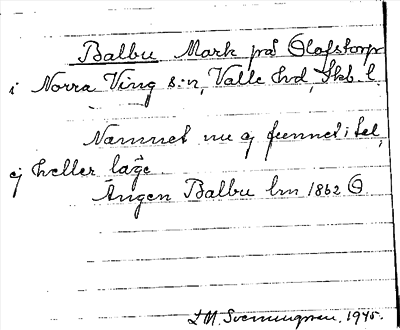 Balbu Mark på Olofstorp
i Norra Ving s:n, Valle hd, Skb. l.
Namnet nu ej funnet i tel,
ej heller läge.
Ängen Balbu lm 1862
Sveningsson, 1945.